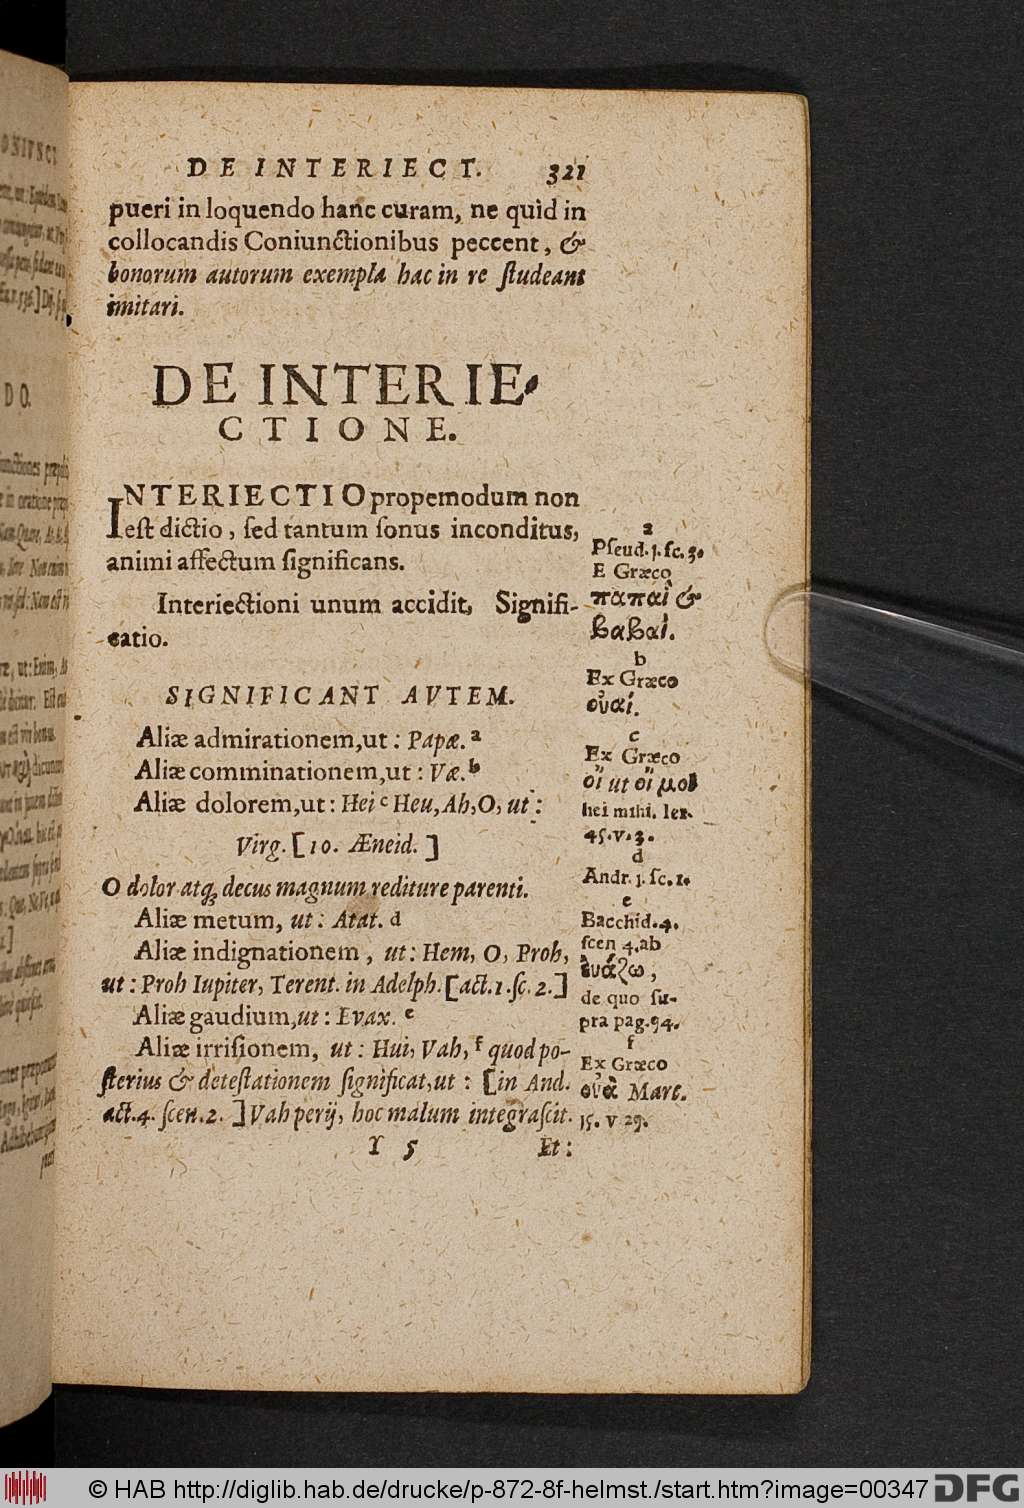 DE INTERIECT. 321
pueri in loquendo hanc curam, ne quid in
collocandis Coniunctionibus peccent, &
bonorum autorum exempla hac in re ſtudeant
imitari.
DE INTERIE-
CTIONE.
INTERIECTIO propemodum non
eſt dictio, ſed tantum ſonus inconditus,
animi affectum ſignificans.
Interiectioni unum accidit, Signifi-
catio.
SIGNIFICANT AVTEM.
Aliæ admirationem,ut: Papæ. a
Aliæ comminationem,ut: Væ. b
Aliæ dolorem,ut: Hei c Heu, Ah, O, ut:
Virg. [10. Æneid.]
O dolor atq; decus magnum rediture parenti.
Aliæ metum, ut: Atat. d
Aliæ indignationem, ut: Hem, O, Proh,
ut: Proh Iupiter, Terent. in Adelph. [act.1.ſc.2.]
Aliæ gaudium,ut: Evax. e
Aliæ irriſionem, ut: Hui, Vah, f quod po-
ſterius & deteſtationem ſignificat,ut: [in And.
act.4. ſcen.2.] Vah perij, hoc malum integraſcit.
Y 5 Et:
a
Pſeud.1.ſc.3.
E Græco
παπαὶ &
βαβαί.
b
Ex Græco
οὐαί.
c
Ex Græco
οἲ ut οἴ μοι
hei mihi. Ier.
45.v.3.
d
Andr.1.ſc.1.
e
Bacchid.4.
ſcen 4.ab
ἐυάζω,
de quo ſu-
pra pag.94.
f
Ex Græco
οὐὰ Marc.
15. v 29.
© HAB http://diglib.hab.de/drucke/p-872-8f-helmst./start.htm?image=00347
DFG